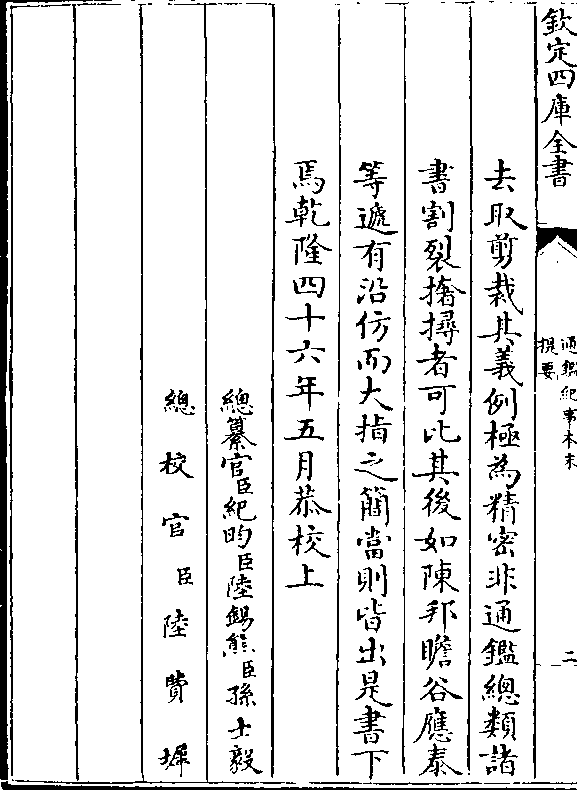 欽定四庫全書
通鑑紀事本末
提要
二
去取剪裁其義例極為精密非通鑑總類諸
書割裂撏撦者可比其後如陳邦瞻谷應泰
等遞有沿仿而大指之簡當則皆出是書下
焉乾隆四十六年五月恭校上
總纂官臣紀昀臣陸錫熊臣孫士毅
總校官臣陸費墀